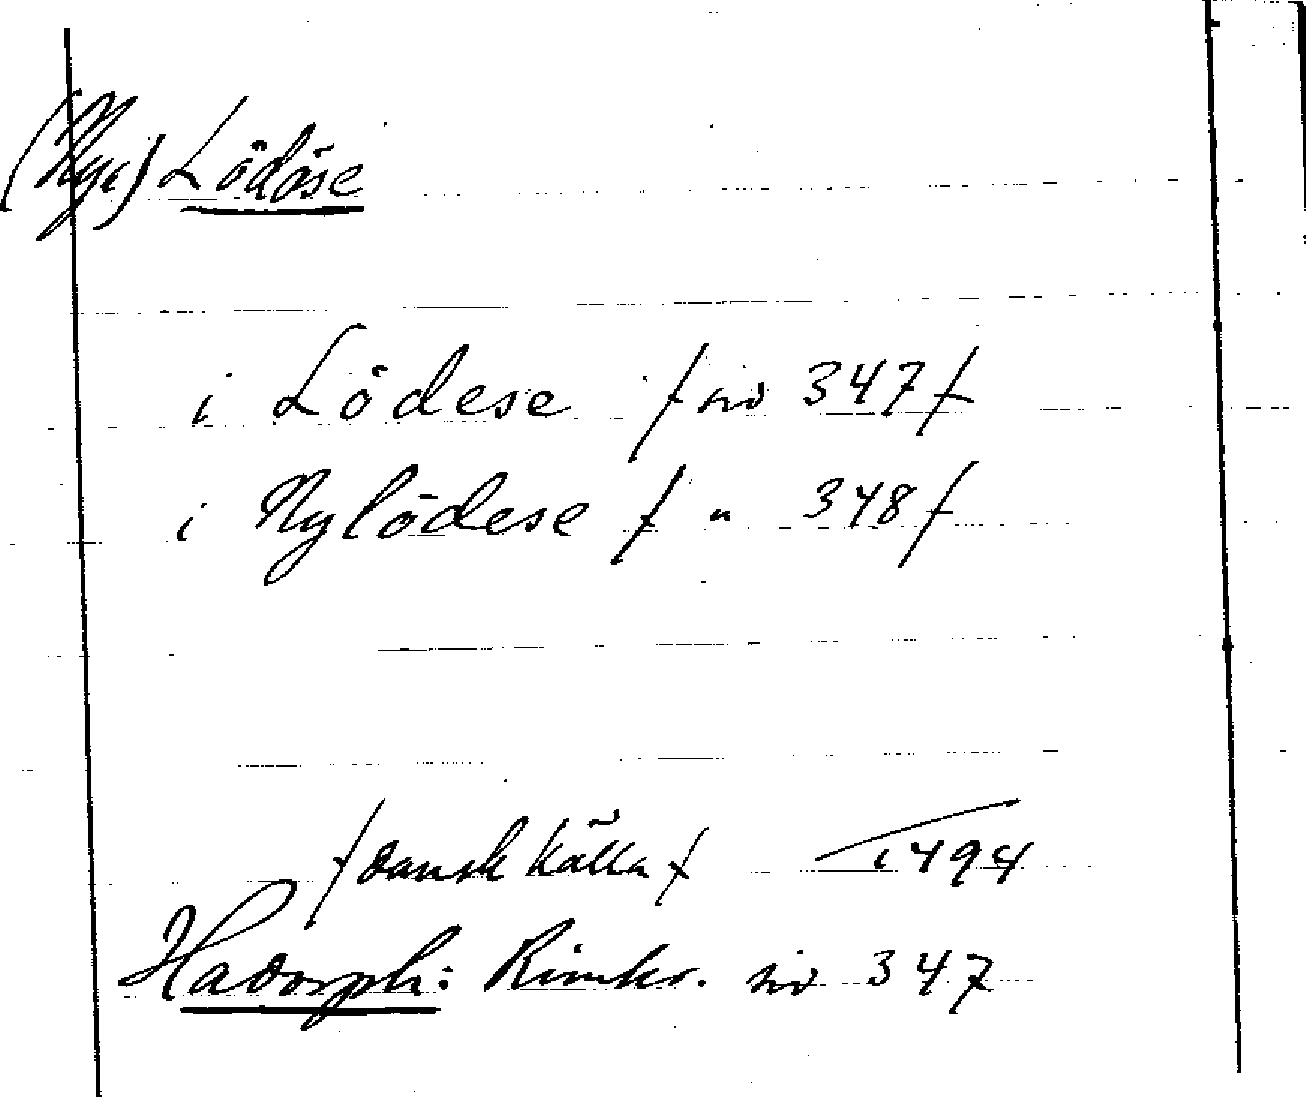 (Nya) Lödöse
i Lödese /sid 347/
i Nylödese / " 348/
/dansk källa/ 1494
Hadorph: Rimkr. sid 347